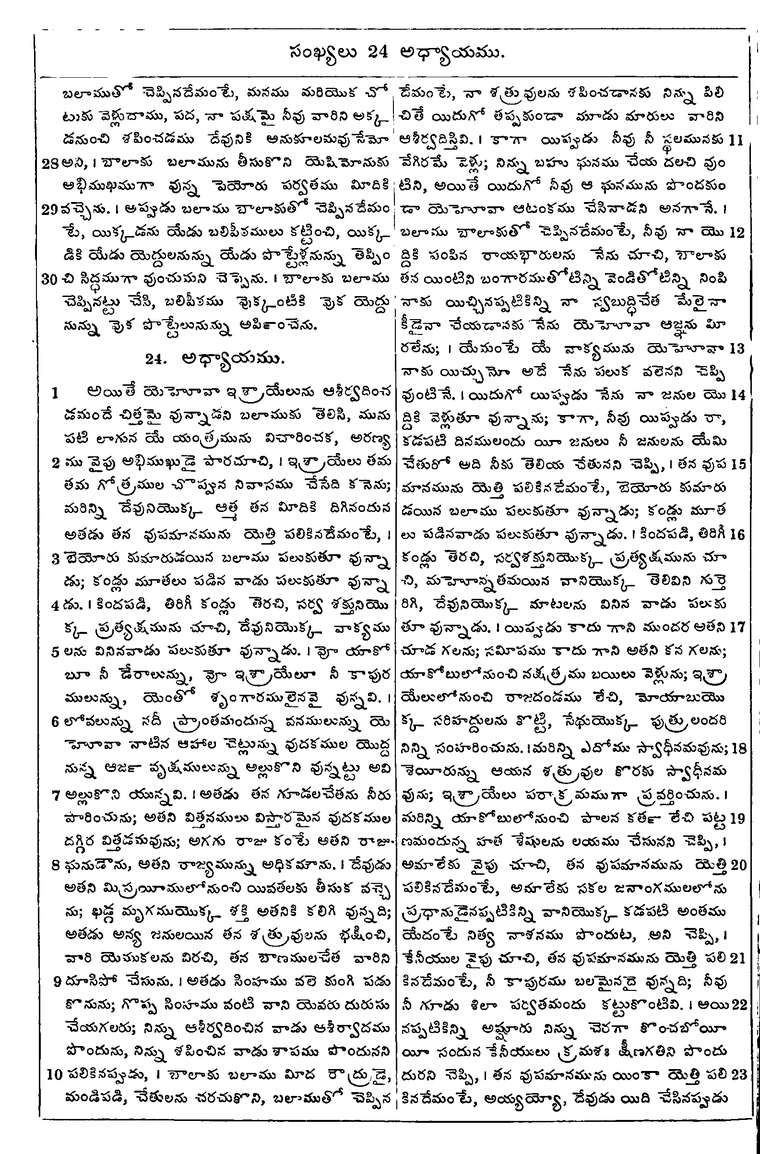 సంఖ్యలు 24 అధ్యాయము.
బలాముతో చెప్పినదేమంటే, మనము మరియొక చో
టుకు వెళ్లుదాము, పద, నా పక్షమై నీవు వారిని అక్క
డనుంచి శపించడము దేవునికి అనుకూలమవునేమో
28 అని, । బాలాకు బలామును తీసుకొని యెషిమోనుకు
అభిముఖముగా వున్న పెయోరు పర్వతము మీదికి
29 వచ్చెను. । అప్పుడు బలాము బాలాకుతో చెప్పినదేమం
టే, యిక్కడను యేడు బలిపీఠములు కట్టించి, యిక్క
డికి యేడు యెద్దులనున్ను యేడు పొట్టేళ్లనున్ను తెప్పిం
30 చి సిద్ధముగా వుంచుమని చెప్పెను. । బాలాకు బలాము
చెప్పినట్టు చేసి, బలిపీఠము వొక్కంటికి వొక యెద్దు
నున్ను వొక పొట్టేలునున్ను అర్పించెను.
24. అధ్యాయము.
1 అయితే యెహోవా ఇశ్రాయేలును ఆశీర్వదించ
డమందే చిత్తమై వున్నాడని బలాముకు తెలిసి, మును
పటి లాగున యే యంత్రమును విచారించక, అరణ్య
2 ము వైపు అభిముఖుడై పారచూచి, । ఇశ్రాయేలు తమ
తమ గోత్రముల చొప్పున నివాసము చేసేది కనెను;
మరిన్ని దేవునియొక్క ఆత్మ తన మీదికి దిగినందున
అతడు తన వుపమానమును యెత్తి పలికినదేమంటే, ।
3 బెయోరు కుమారుడయిన బలాము పలుకుతూ వున్నా
డు; కండ్లు మూతలు పడిన వాడు పలుకుతూ వున్నా
4 డు. । కిందపడి, తిరిగీ కండ్లు తెరచి, సర్వ శక్తునియొ
క్క ప్రత్యక్షమును చూచి, దేవునియొక్క వాక్యము
5 లను వినినవాడు పలుకుతూ వున్నాడు. । వొా యాకో
బూ నీ డేరాలున్ను, వొా ఇశ్రాయేలూ నీ కాపుర
ములున్ను, యెంతో శృంగారములైనవై వున్నవి. ।
6 లోవలున్ను నదీ ప్రాంతమందున్న వనములున్ను యె
హోవా నాటిన ఆహాల చెట్లున్ను వుదకముల యొద్ద
నున్న ఆర్జ వృక్షములున్ను అల్లుకొని వున్నట్టు అవి
7 అల్లుకొని యున్నవి. । అతడు తన గూడలచేతను నీరు
పారించును; అతని విత్తనములు విస్తారమైన వుదకముల
దగ్గిర విత్తడమవును; అగగు రాజు కంటే అతని రాజు
8 ఘనుడౌను, అతని రాజ్యమున్ను అధికమౌను. । దేవుడు
అతని మిస్రయీములోనుంచి యివతలకు తీసుక వచ్చె
ను; ఖడ్గ మృగముయొక్క శక్తి అతనికి కలిగి వున్నది;
అతడు అన్య జనులయిన తన శత్రువులను భక్షించి,
వారి యెముకలను విరచి, తన బాణములచేత వారిని
9 దూసిపో చేసును. । అతడు సింహము వలె కుంగి పడు
కొనును; గొప్ప సింహము వంటి వాని యెవరు దురుసు
చేయగలరు; నిన్ను ఆశీర్వదించిన వాడు ఆశీర్వాదము
పొందును, నిన్ను శపించిన వాడు శాపము పొందునని
10 పలికినప్పుడు, । బాలాకు బలాము మీద రౌద్రుడై,
మండిపడి, చేతులను చరచుకొని, బలాముతో చెప్పిన
దేమంటే, నా శత్రువులను శపించడానకు నిన్ను పిలి
చితే యిదుగో తప్పకుండా మూడు మారులు వారిని
ఆశీర్వదిస్తివి. । కాగా యిప్పుడు నీవు నీ స్థలమునకు 11
వేగిరమే వెళ్లు; నిన్ను బహు ఘనము చేయ దలచి వుం
టిని, అయితే యిదుగో నీవు ఆ ఘనమును పొందకుం
డా యెహోవా ఆటంకము చేసినాడని అనగానే. ।
బలాము బాలాకుతో చెప్పినదేమంటే, నీవు నా యొ 12
ద్దికి పంపిన రాయభారులను నేను చూచి, బాలాకు
తన యింటిని బంగారముతోటిన్ని వెండితోటిన్ని నింపి
నాకు యిచ్చినప్పటికిన్ని నా స్వబుద్ధిచేత మేలైనా
కీడైనా చేయడానకు నేను యెహోవా ఆజ్ఞను మీ
రలేను; । యేమంటే యే వాక్యమును యెహోవా 13
నాకు యిచ్చునో అదే నేను పలుక వలెనని చెప్పి
వుంటినే. । యిదుగో యిప్పుడు నేను నా జనుల యొ 14
ద్దికి వెళ్లుతూ వున్నాను; కాగా, నీవు యిప్పుడు రా,
కడపటి దినములందు యీ జనులు నీ జనులను యేమి
చేతురో అది నీకు తెలియ చేతునని చెప్పి, । తన వుప 15
మానమును యెత్తి పలికినదేమంటే, బెయోరు కుమారు
డయిన బలాము పలుకుతూ వున్నాడు; కండ్లు మూత
లు పడినవాడు పలుకుతూ వున్నాడు. । కిందపడి, తిరిగీ 16
కండ్లు తెరచి, సర్వశక్తునియొక్క ప్రత్యక్షమును చూ
చి, మహోన్నతమయిన వానియొక్క తెలివిని గుర్తె
రిగి, దేవునియొక్క మాటలను వినిన వాడు పలుకు
తూ వున్నాడు. । యిప్పుడు కాదు గాని ముందర అతని 17
చూడ గలను; సమీపము కాదు గాని అతని కన గలను;
యాకోబులోనుంచి నక్షత్రము బయిలు వెళ్లును; ఇశ్రా
యేలులోనుంచి రాజదండము లేచి, మోయాబుయొ
క్క సరిహద్దులను కొట్టి, సేథుయొక్క పుత్రులందరి
నిన్ని సంహరించును. । మరిన్ని ఎదోము స్వాధీనమవును; 18
శెయీరున్ను ఆయన శత్రువుల కొరకు స్వాధీనమ
వును; ఇశ్రాయేలు పరాక్రమముగా ప్రవర్తించును. ।
మరిన్ని యాకోబులోనుంచి పాలన కర్త లేచి పట్ట 19
ణమందున్న హత శేషులను లయము చేసునని చెప్పి, ।
అమాలేకు వైపు చూచి, తన వుపమానమును యెత్తి 20
పలికినదేమంటే, అమాలేకు సకల జనాంగములలోను
ప్రధానుడైనప్పటికిన్ని వానియొక్క కడపటి అంతము
యేదంటే నిత్య నాశనము పొందుట, అని చెప్పి, ।
కేనీయుల వైపు చూచి, తన వుపమానమును యెత్తి పలి 21
కినదేమంటే, నీ కాపురము బలమైనదై వున్నది; నీవు
నీ గూడు శిలా పర్వతమందు కట్టుకొంటివి. । అయి 22
నప్పటికిన్ని అష్షూరు నిన్ను చెరగా కొంచబోయీ
యీ సందున కేనీయులు క్రమశః క్షీణగతిని పొందు
దురని చెప్పి, । తన వుపమానమును యింకా యెత్తి పలి 23
కినదేమంటే, అయ్యయ్యో, దేవుడు యిది చేసినప్పుడు